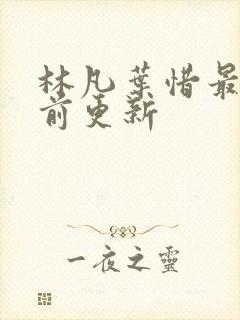 林凡葉惜最
前更新
一夜之靈